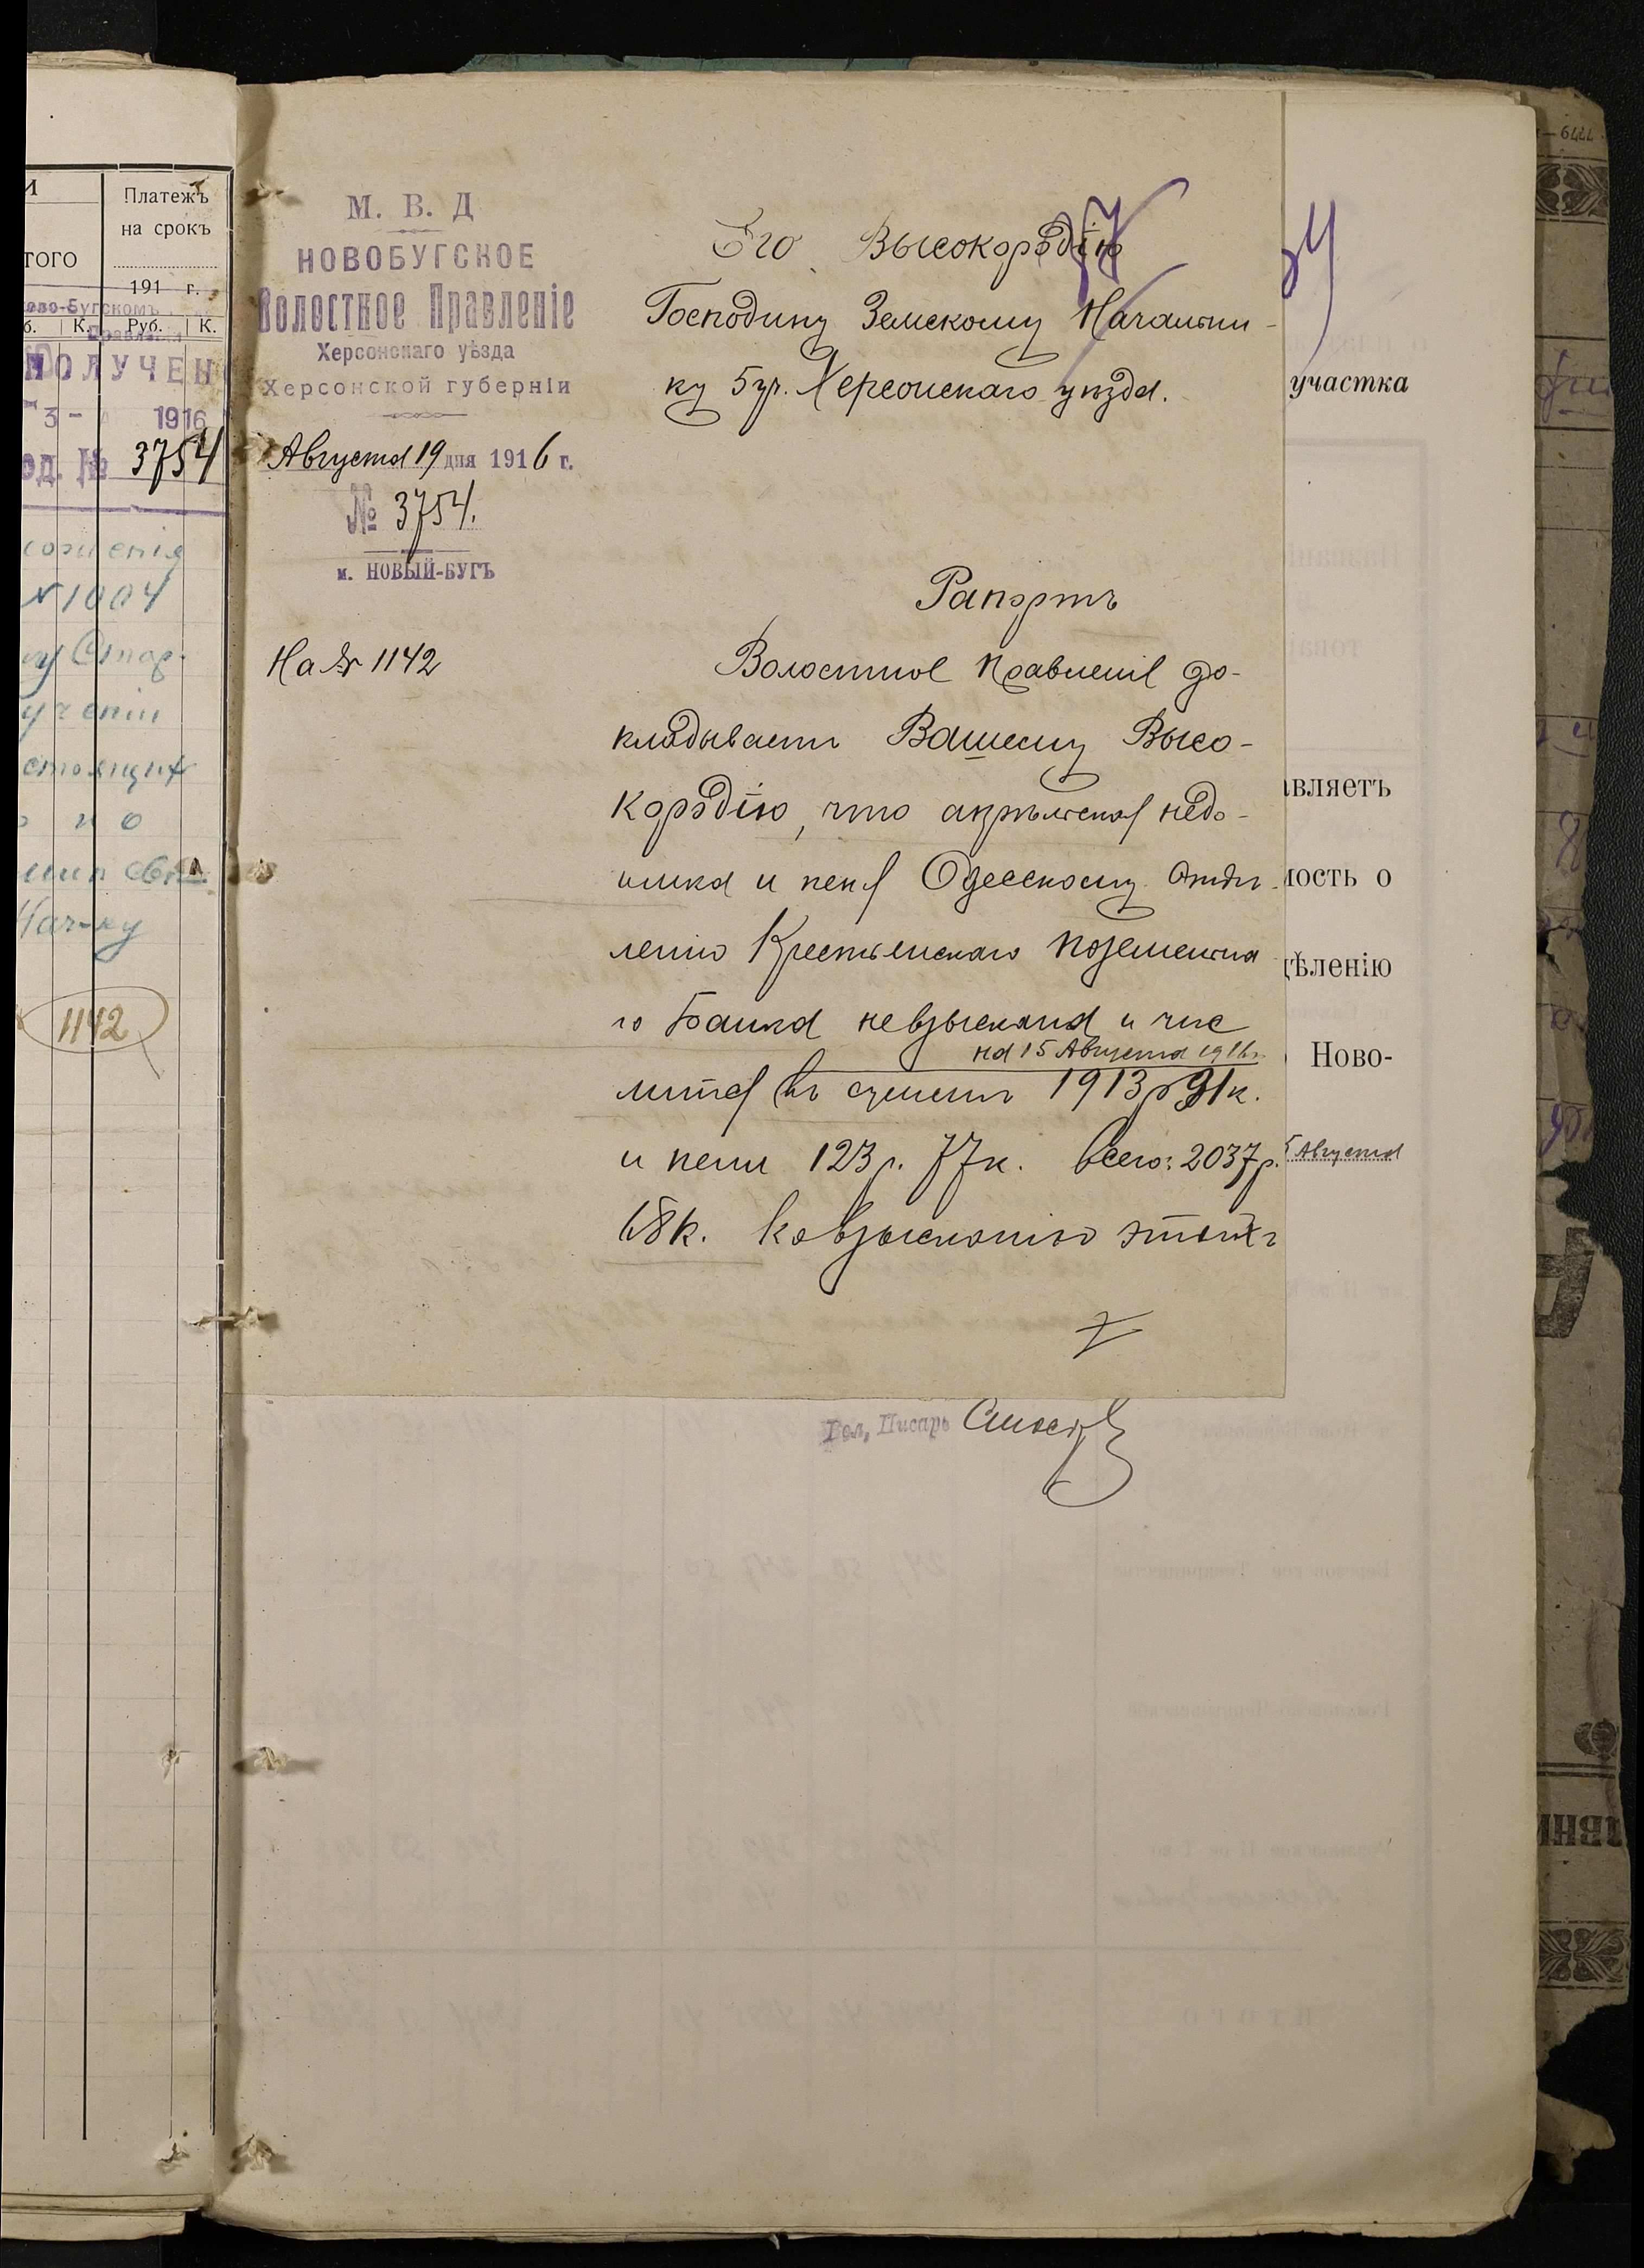 И
Платежъ
на срокъ
того
191 г.
К.
Руб.
К.
ПОЛУЧЕН
3 - 1916
од. № 3754
№ 1004
1142
М. В. Д
НОВОБУГСКОЕ
Волостное Правленіе
Херсонскаго уѣзда
Херсонской губерніи
Августа 19 дня 1916 г.
№ 3754.
м. НОВЫЙ-БУГЪ
На № 1142
Его Высокородію
Господину Земскому Начальни-
ку 5 уч. Херсонскаго уѣзда.
Рапортъ
Волостное Правленіе до-
кладываетъ Вашему Высо-
кородію, что апрѣльская недо-
имка и пеня Одесскому Отдѣ-
ленію Крестьянскаго Поземельна
го Банка невзыскана и чис
на 15 Августа 1916 г.
лится въ суммѣ 1913 р 91 к.
и пени 123 р. 77 к. Всего: 2037 р.
68 к. Ко взысканію этихъ
Вол, Писарь
участка
вляетъ
ость о
ѣленію
Ново-
5 Августа